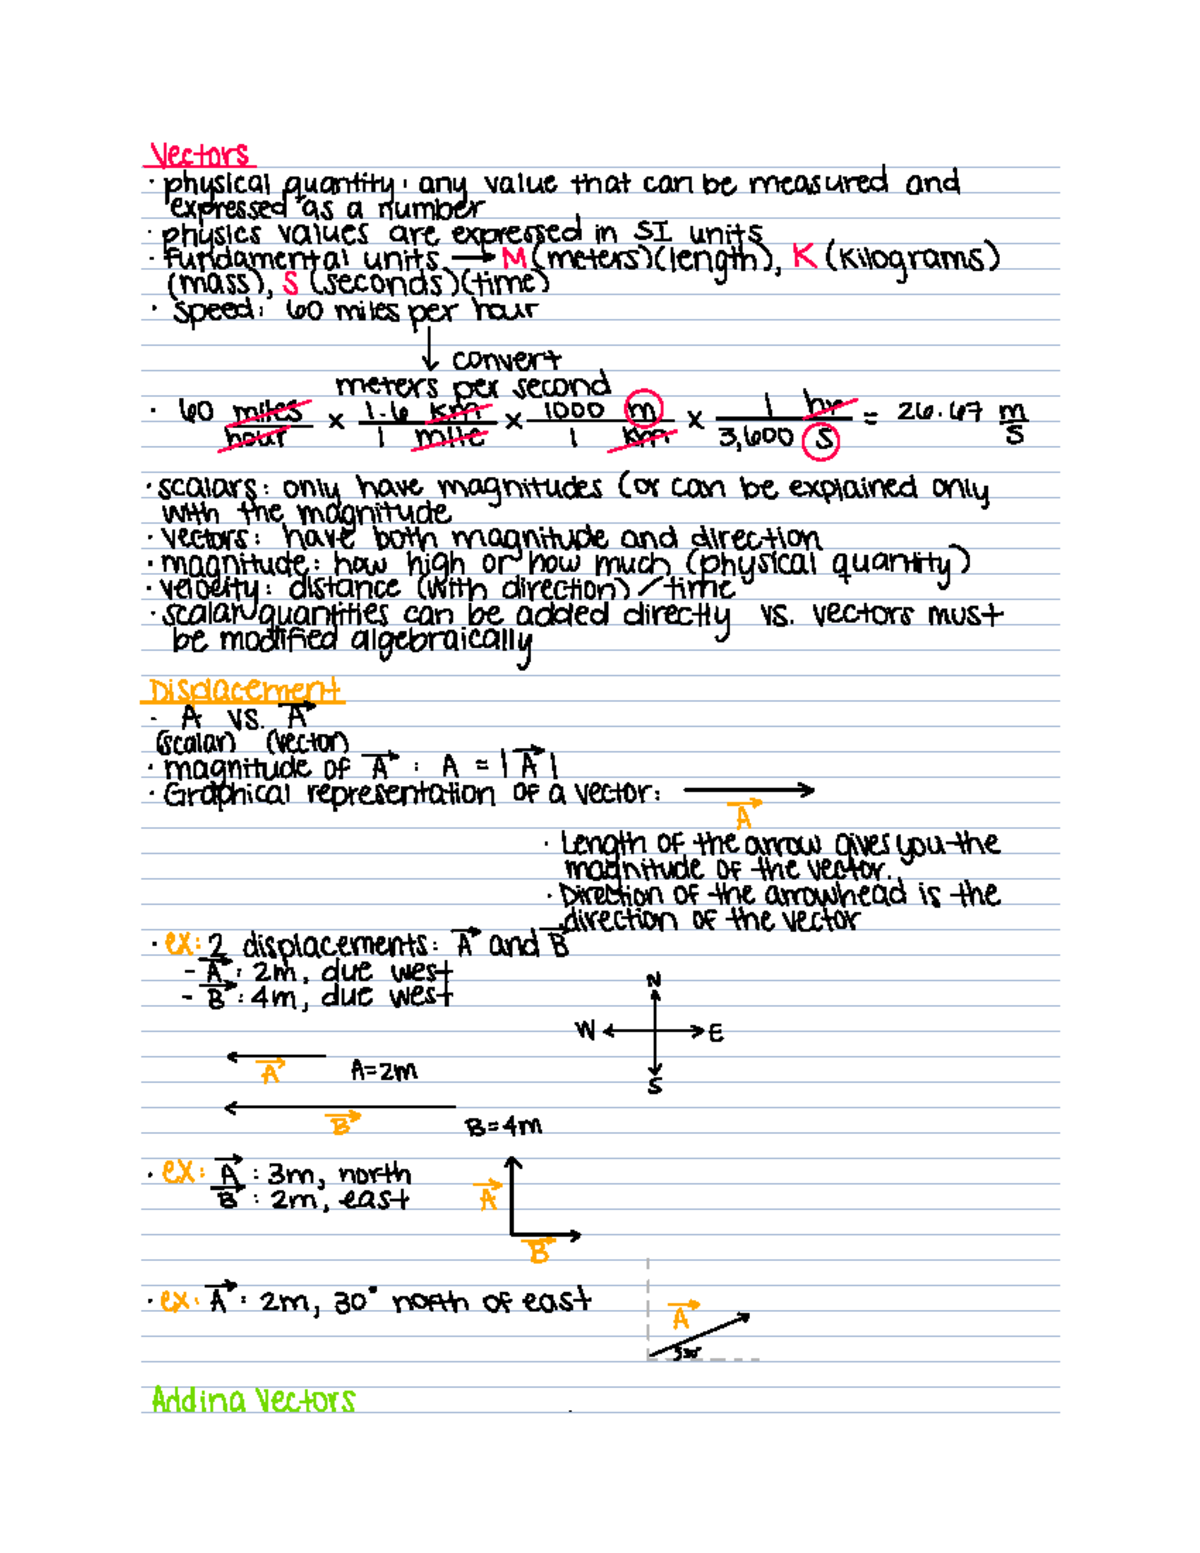 Vectors
· physical quantity: any value that can be measured and
expressed as a number
· physics values are expressed in SI units
· Fundamental units → M (meters)(length), K (kilograms)
(mass), S (seconds)(time)
· Speed: 60 miles per hour
↓ convert
meters per second
· 60 miles/hour × 1.6 km/1 mile × 1000 m/1 km × 1 hr/3,600 s = 26.67 m/s
· scalars: only have magnitudes (or can be explained only
with the magnitude
· vectors: have both magnitude and direction
· magnitude: how high or how much (physical quantity)
· velocity: distance (with direction)/time
· scalar quantities can be added directly vs. vectors must
be modified algebraically
Displacement
· A vs. A⃗
(scalar) (vector)
· magnitude of A⃗ : A = |A⃗|
· Graphical representation of a vector:
A⃗
· Length of the arrow gives you the
magnitude of the vector.
· Direction of the arrowhead is the
direction of the vector
· ex: 2 displacements: A⃗ and B⃗
- A⃗ : 2m, due west
- B⃗ : 4m, due west
N
W E
S
A⃗ A=2m
B⃗ B=4m
· ex: A⃗ : 3m, north
B⃗ : 2m, east
A⃗
B⃗
· ex: A⃗ : 2m, 30° north of east
A⃗
30°
Adding Vectors